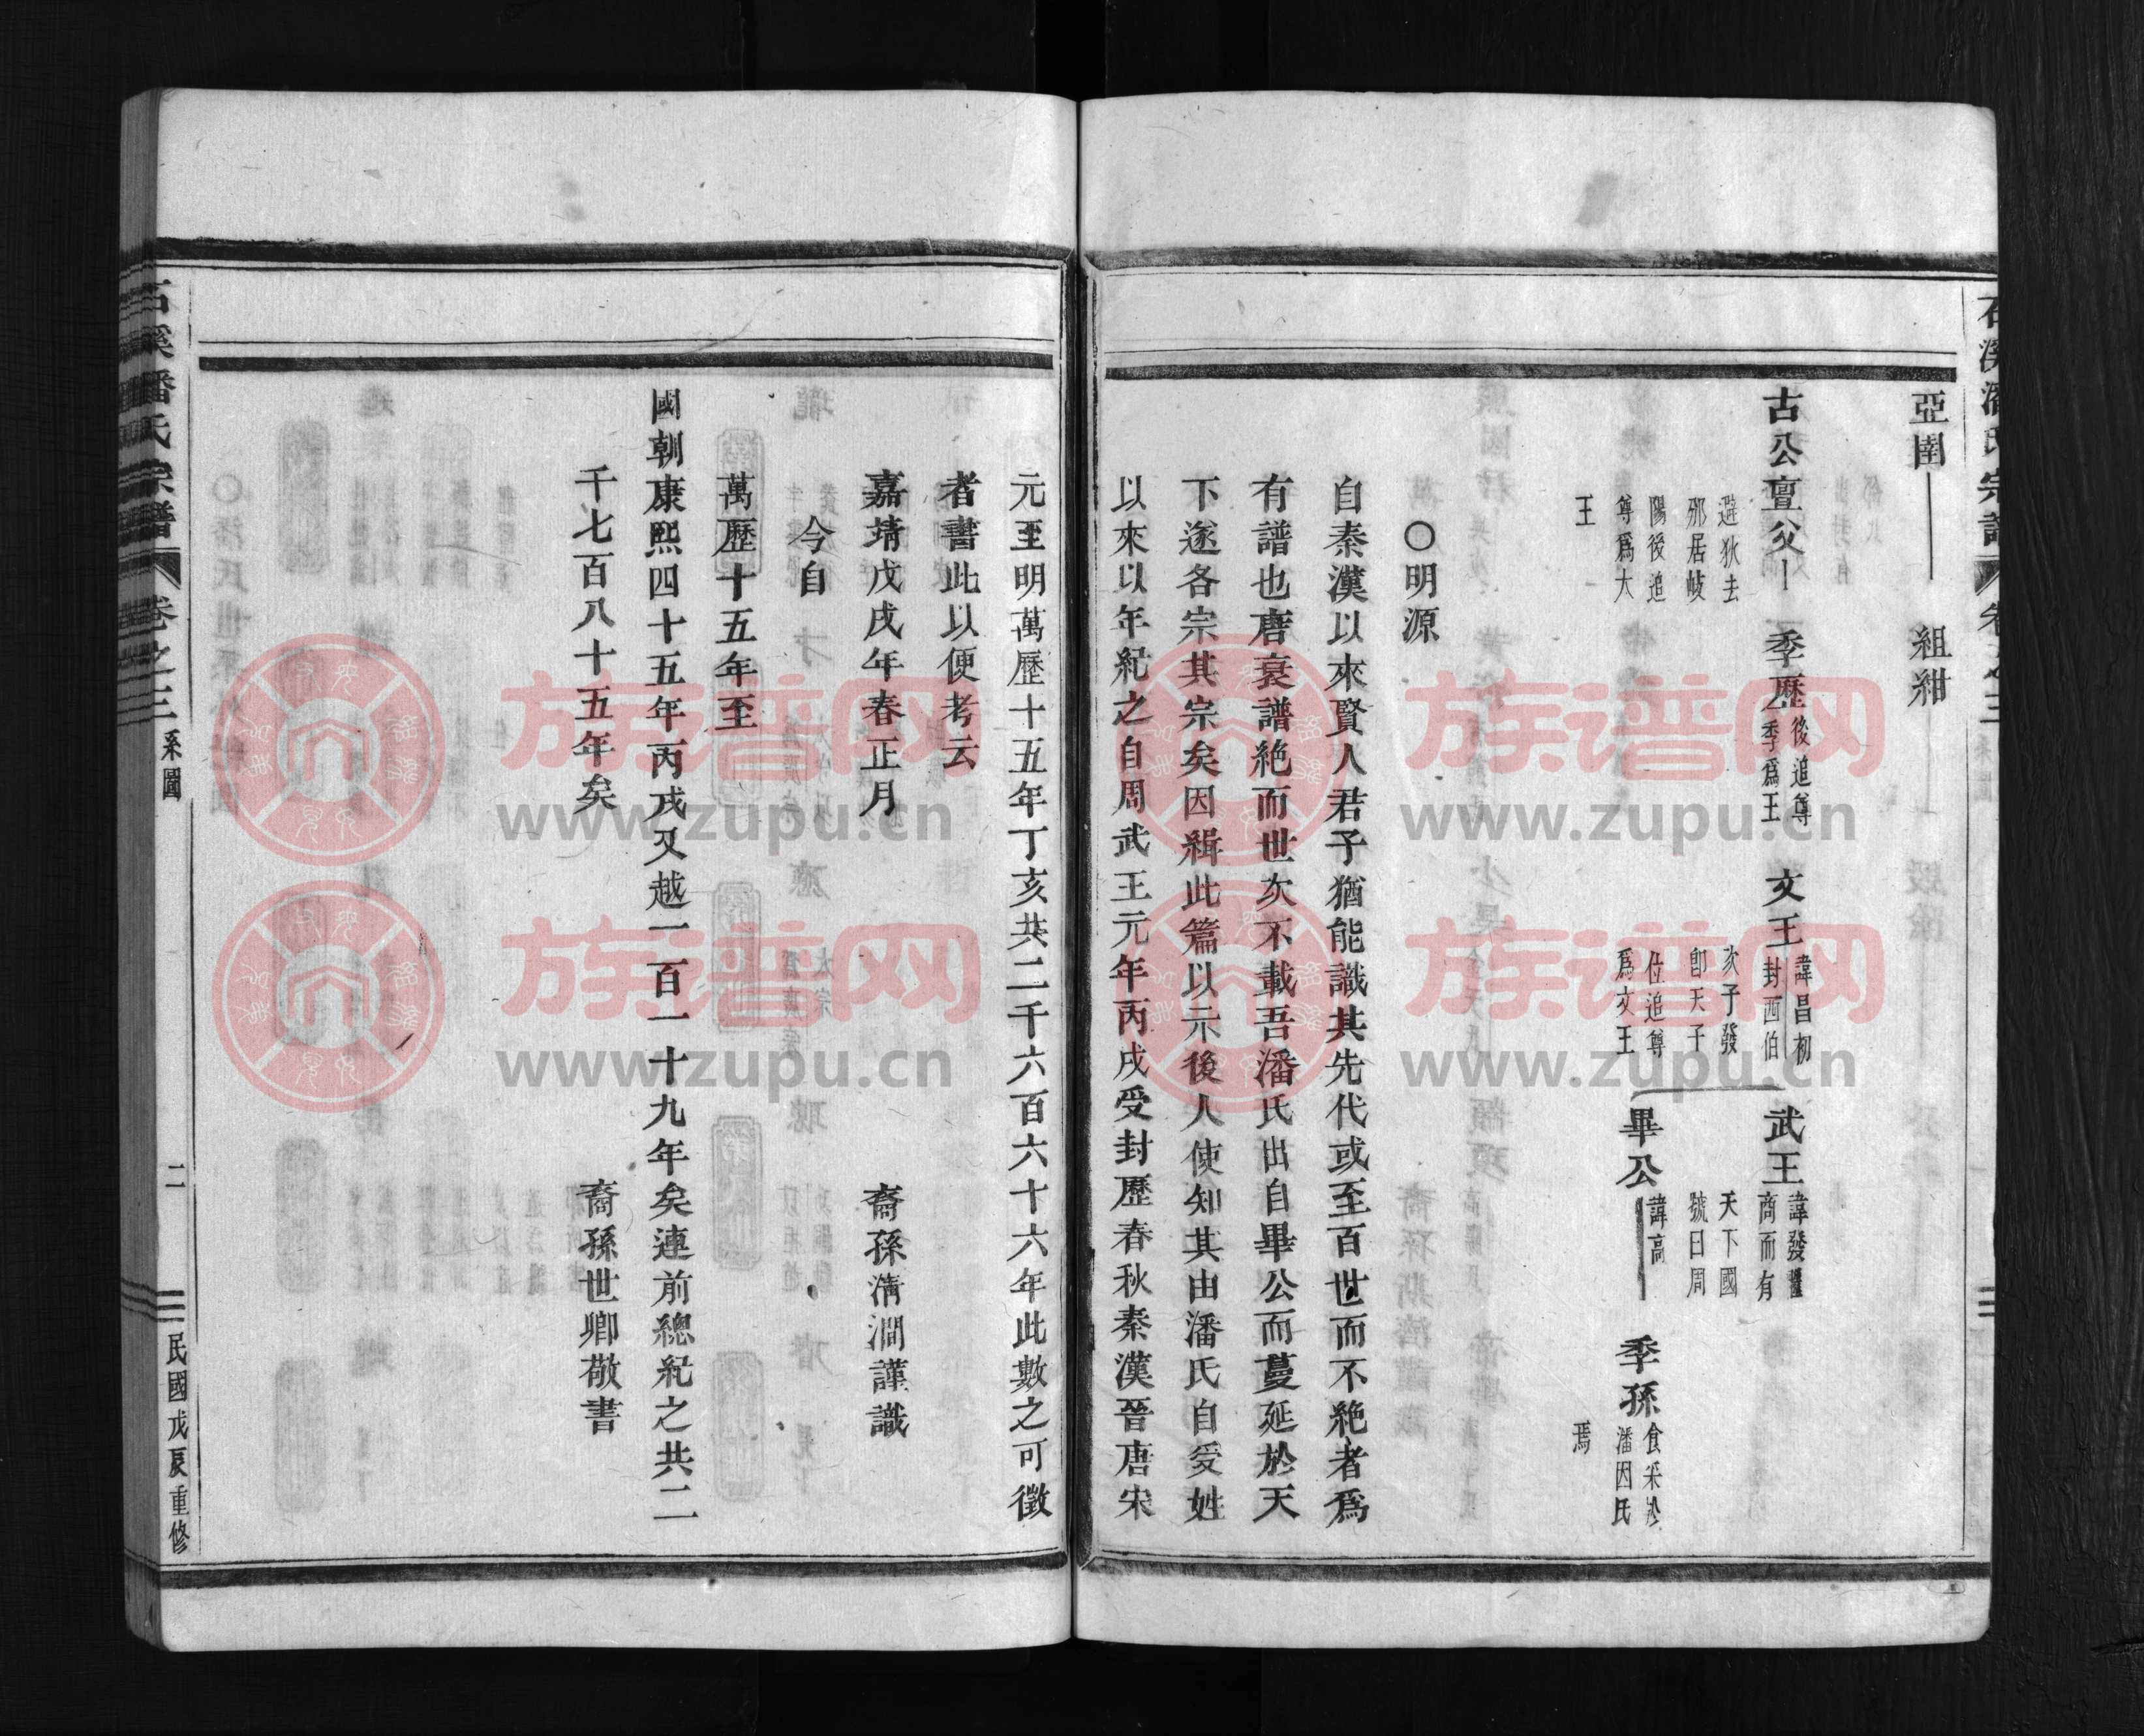 石溪潘氏宗譜 卷之三
亞圉 組紺
古公亶父 避狄去邠居岐陽後追尊爲大王 季歷 後追尊季爲王 文王 諱昌初封西伯次子發卽天子位追尊爲文王 武王 諱發翦商而有天下國號曰周
畢公 諱高 季孫 食采於潘因氏焉
〇明源
自秦漢以來賢人君子猶能識其先代或至百世而不絶者爲
有譜也唐衰譜絶而世次不載吾潘氏出自畢公而蔓延於天
下遂各宗其宗矣因緝此篇以示後人使知其由潘氏自受姓
以來以年紀之自周武王元年丙戌受封歷春秋秦漢晉唐宋
元至明萬歷十五年丁亥共二千六百六十六年此數之可徵
者書此以便考云
嘉靖戊戌年春正月 裔孫清澗謹識
今自
萬歷十五年至
國朝康熙四十五年丙戌又越一百一十九年矣連前總紀之共二
千七百八十五年矣 裔孫世卿敬書
石溪潘氏宗譜 卷之三 系圖 二 民國戊辰重修
族谱网
www.zupu.cn
族谱网
www.zupu.cn
族谱网
www.zupu.cn
族谱网
www.zupu.cn